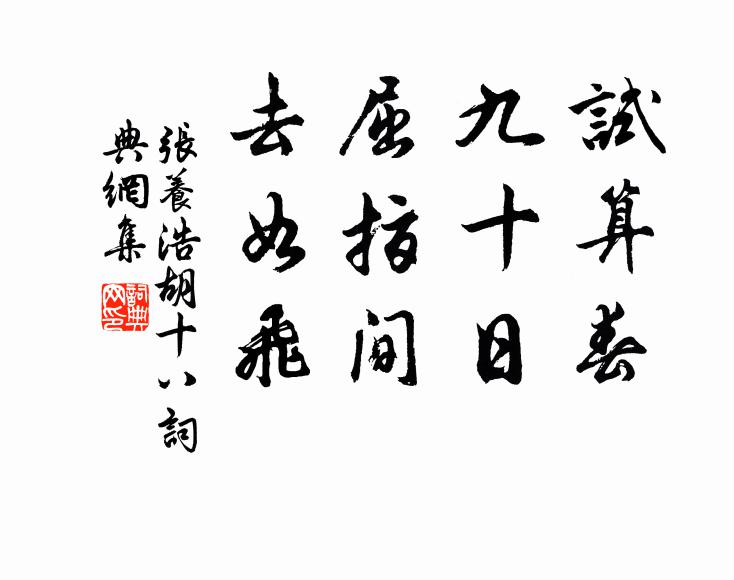 試算春
九十日
屈指間
去如飛
張養浩胡十八詞
典網集
詞典
网印